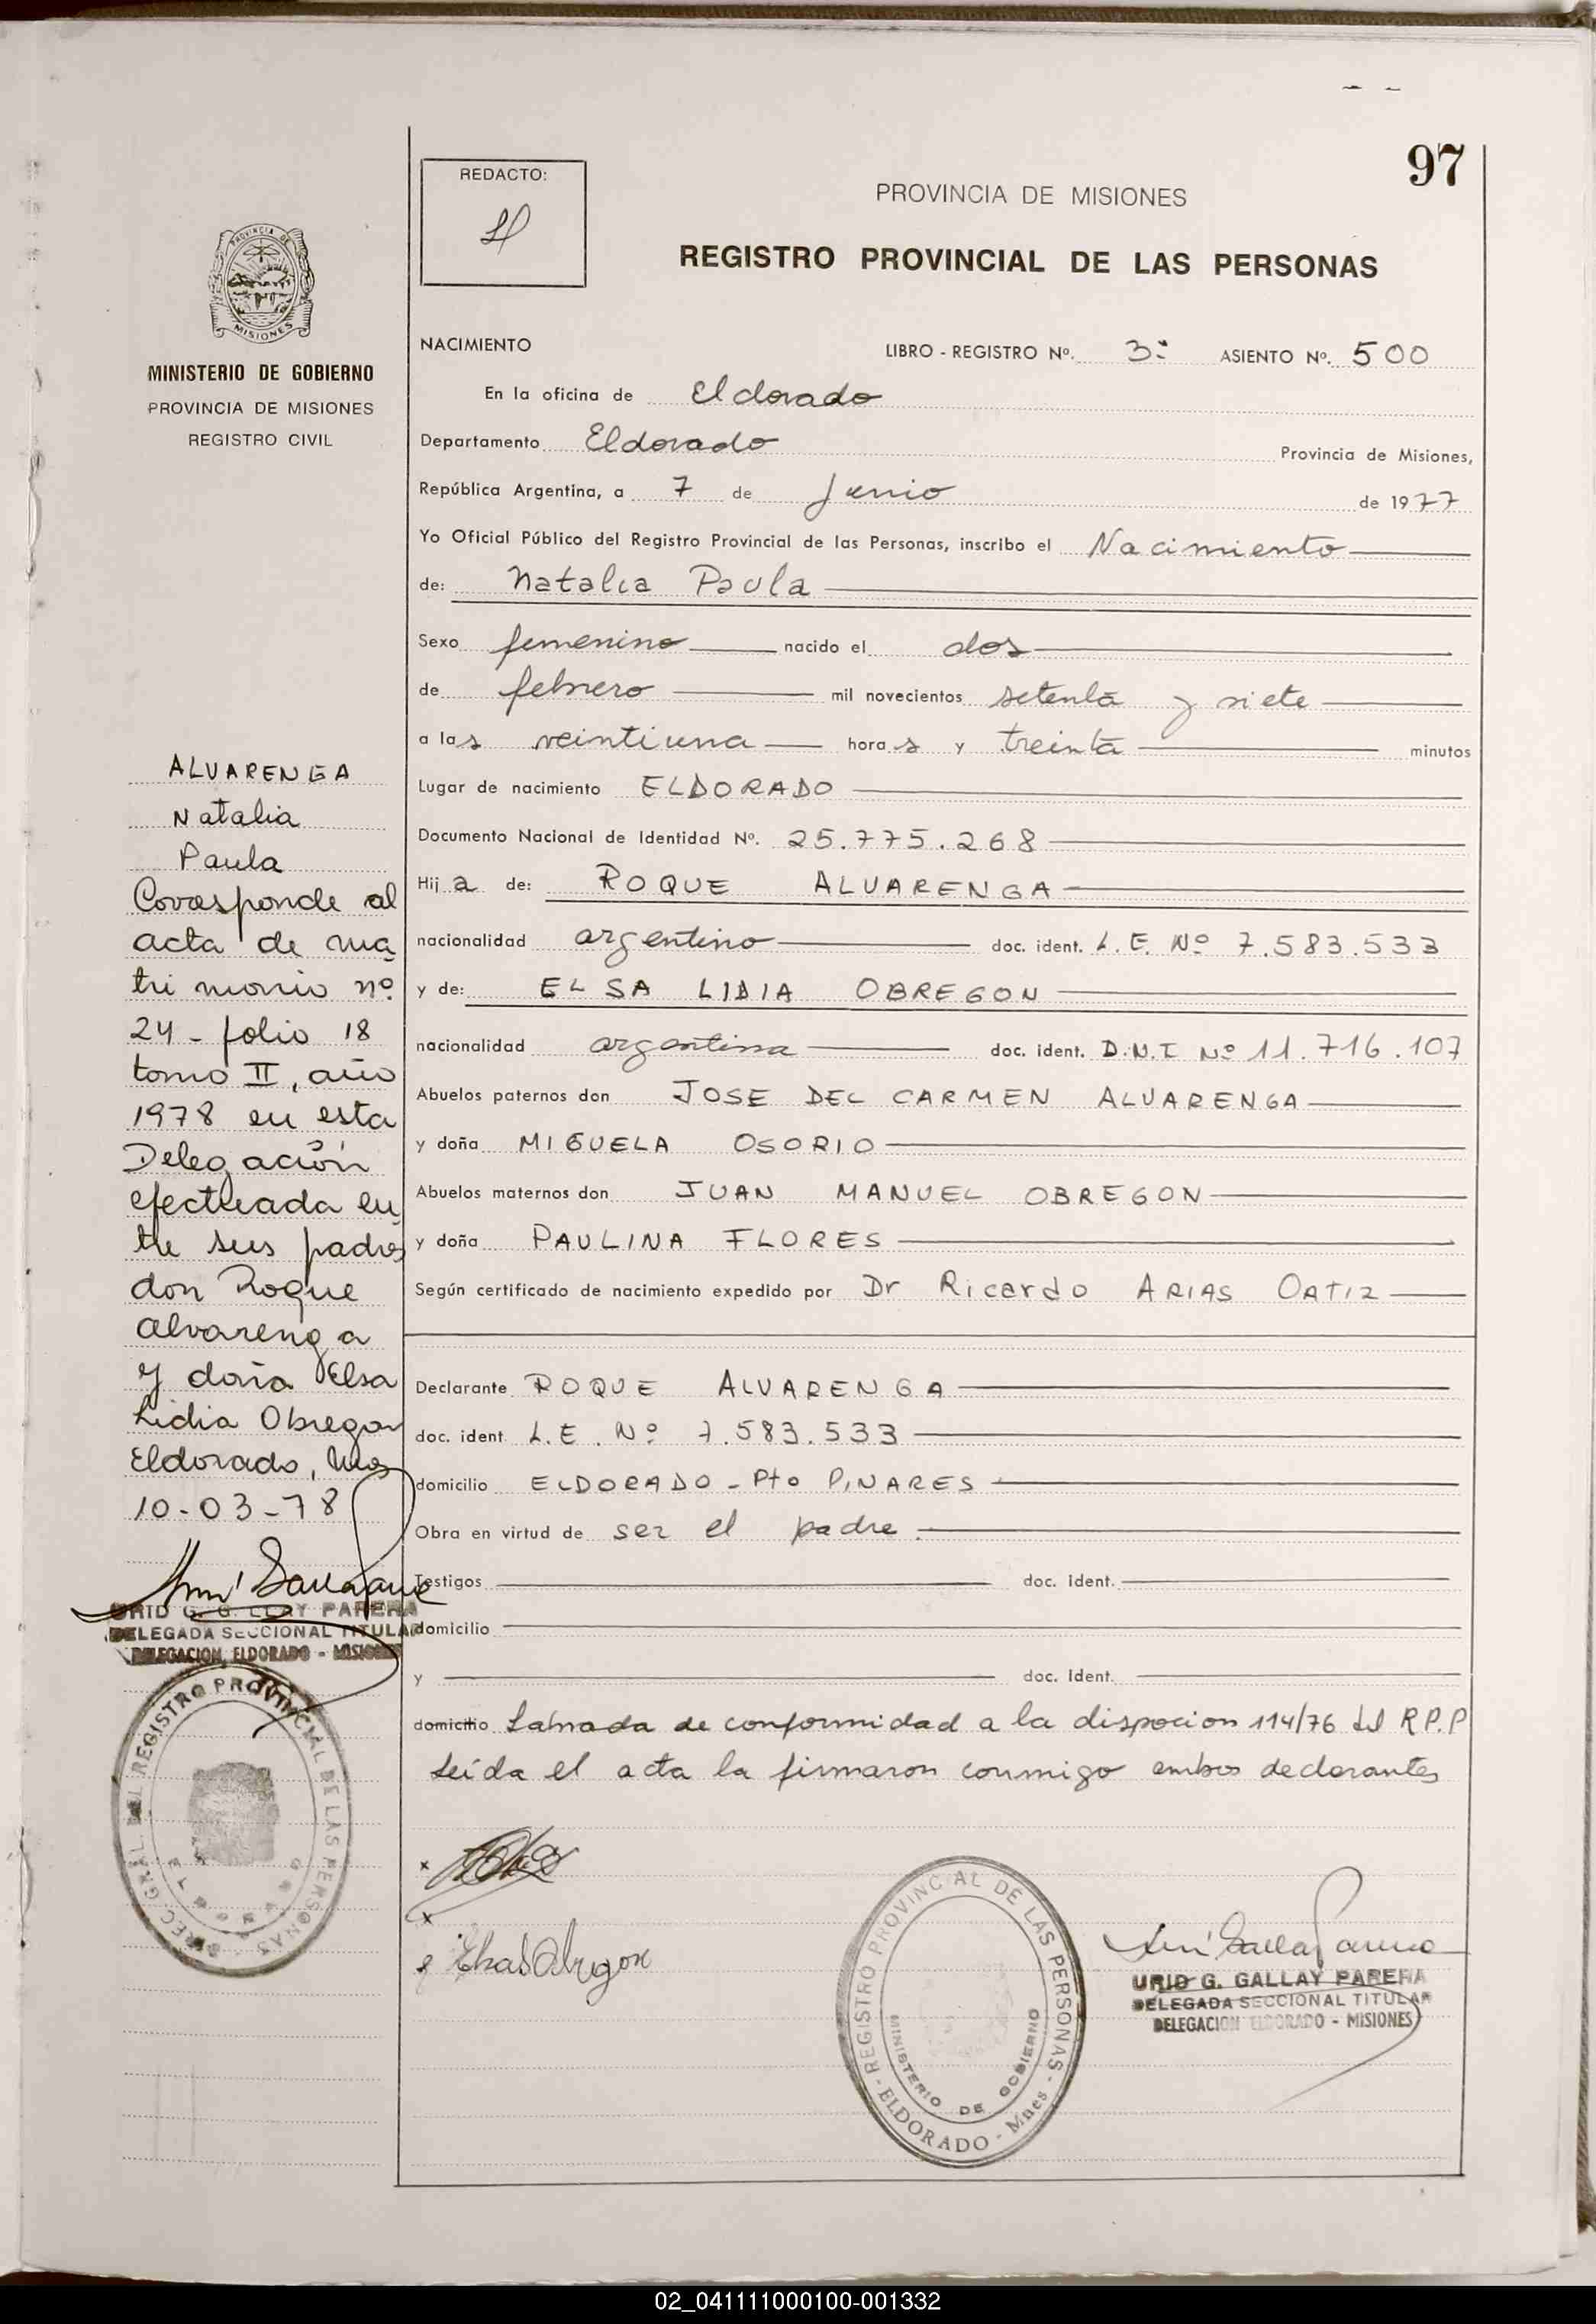 97
REDACTO:
PROVINCIA DE MISIONES
REGISTRO PROVINCIAL DE LAS PERSONAS
PROVINCIA DE
MISIONES
MINISTERIO DE GOBIERNO
PROVINCIA DE MISIONES
REGISTRO CIVIL
NACIMIENTO LIBRO - REGISTRO Nº. 3º ASIENTO Nº. 500
En la oficina de Eldorado
Departamento Eldorado Provincia de Misiones,
República Argentina, a 7 de Junio de 1977
Yo Oficial Público del Registro Provincial de las Personas, inscribo el Nacimiento
de: Natalia Paula
Sexo femenino nacido el dos
de febrero mil novecientos setenta y siete
a las veintiuna horas y treinta minutos
Lugar de nacimiento ELDORADO
Documento Nacional de Identidad Nº. 25.775.268
Hija de: ROQUE ALVARENGA
nacionalidad argentino doc. ident. L.E. Nº 7.583.533
y de: ELSA LIDIA OBREGON
nacionalidad argentina doc. ident. D.N.I Nº 11.716.107
Abuelos paternos don JOSE DEL CARMEN ALVARENGA
y doña MIGUELA OSORIO
Abuelos maternos don JUAN MANUEL OBREGON
y doña PAULINA FLORES
Según certificado de nacimiento expedido por Dr Ricardo ARIAS ORTIZ
Declarante ROQUE ALVARENGA
doc. ident. L.E. Nº 7.583.533
domicilio ELDORADO - Pto PINARES
Obra en virtud de ser el padre.
Testigos doc. ident.
domicilio
y doc. ident.
domicilio Labrada de conformidad a la dispocion 114/76 del R.P.P
Leída el acta la firmaron conmigo ambos declarantes
ALVARENGA
Natalia
Paula
Corresponde al
acta de ma
trimonio nº
24 - folio 18
tomo II, año
1978 en esta
Delegación
efectuada en
tre sus padres
don Roque
Alvarenga
y doña Elsa
Lidia Obregon
Eldorado, Mnes
10-03-78
URID G. GALLAY PARERA
DELEGADA SECCIONAL TITULAR
DELEGACION ELDORADO - MISIONES
DIREC. GRAL. DEL REGISTRO PROVINCIAL DE LAS PERSONAS
ELDORADO
x
x
Elsa L Obregon
REGISTRO PROVINCIAL DE LAS PERSONAS
MINISTERIO DE GOBIERNO
ELDORADO - Mnes
URID G. GALLAY PARERA
DELEGADA SECCIONAL TITULAR
DELEGACION ELDORADO - MISIONES
02_041111000100-001332